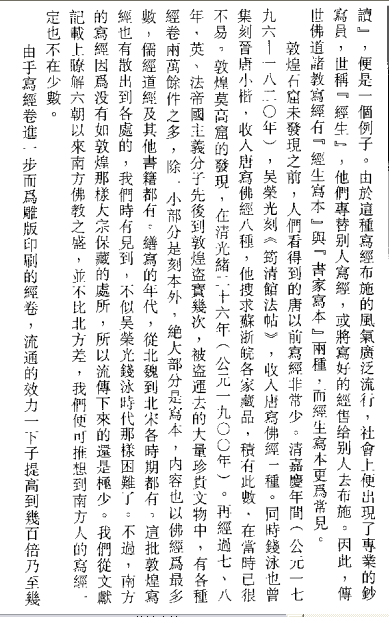 讀』，便是一個例子。由於這種寫經布施的風氣廣泛流行，社會上便出現了專業的鈔
寫員，世稱『經生』，他們專替別人寫經，或將寫好的經售給別人去布施。因此，傳
世佛道諸教寫經有『經生寫本』與『書家寫本』兩種，而經生寫本更爲常見。
敦煌石窟未發現之前，人們看得到的唐以前寫經非常少。清嘉慶年間（公元一七
九六—一八二〇年），吳榮光刻《筠清館法帖》，收入唐寫佛經一種。同時錢泳也曾
集刻晉唐小楷，收入唐寫佛經八種，他搜求蘇浙皖各家藏品，積有此數，在當時已很
不易。敦煌莫高窟的發現，在清光緒二十六年（公元一九〇〇年）。再經過七、八
年，英、法帝國主義分子先後到敦煌盜寶幾次，被盜運去的大量珍貴文物中，有各種
經卷兩萬餘件之多，除一小部分是刻本外，絕大部分是寫本，內容也以佛經爲最多
數，儒經道經及其他書籍都有。繕寫的年代，從北魏到北宋各時期都有。這批敦煌寫
經也有散出到各處的，我們時有見到，不似吳榮光錢泳時代那樣困難了。不過，南方
的寫經因爲没有如敦煌那樣大宗保藏的處所，所以流傳下來的還是極少。我們從文獻
記載上瞭解六朝以來南方佛教之盛，並不比北方差，我們便可推想到南方人的寫經，
定也不在少數。
由于寫經卷進一步而爲雕版印刷的經卷，流通的效力一下子提高到幾百倍乃至幾